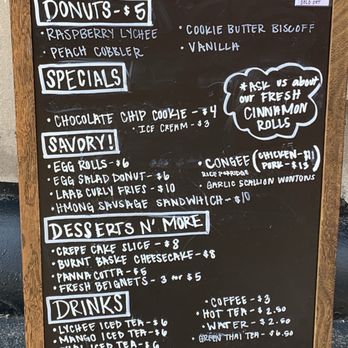 SOLD OUT
DONUTS - $5
• RASPBERRY LYCHEE
• PEACH COBBLER
• COOKIE BUTTER BISCOFF
• VANILLA
SPECIALS
* ASK US about
our FRESH
CINNAMON
ROLLS
• CHOCOLATE CHIP COOKIE - $4
• ICE CREAM - $3
SAVORY!
• EGG ROLLS - $6
• EGG SALAD DONUT - $6
• LAAB CURLY FRIES - $10
• HMONG SAUSAGE SANDWHICH - $10
• CONGEE (CHICKEN - $11
PORK - $13)
RICE PORRIDGE
• GARLIC SCALLION WONTONS
DESSERTS N' MORE
• CREPE CAKE SLICE - $8
• BURNT BASKE CHEESECAKE - $8
• PANNA COTTA - $5
• FRESH BEIGNETS - 3 for $5
DRINKS
• LYCHEE ICED TEA - $6
• MANGO ICED TEA - $6
• THAI ICED TEA - $6
• COFFEE - $3
• HOT TEA - $2.50
• WATER - $2.50
• GREEN THAI TEA - $6